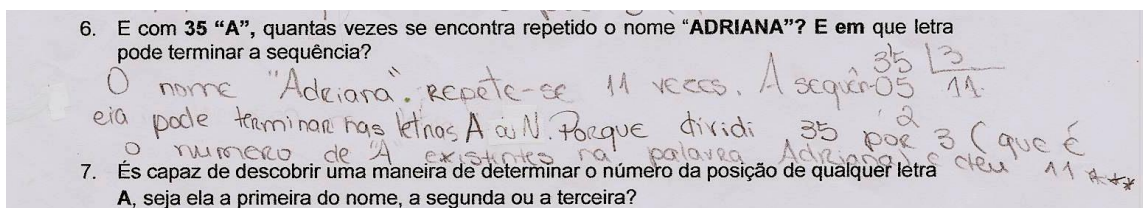 6. E com 35 "A", quantas vezes se encontra repetido o nome "ADRIANA"? E em que letra
pode terminar a sequência?
35 | 3
O nome "Adriana". REpete-se 11 vezes. A sequên- 05 11.
cia pode terminar nas letras A ou N. Porque dividi 35 por 3 (que é
2
o numero de "A existentes na palavra Adriana) e deu 11
7. És capaz de descobrir uma maneira de determinar o número da posição de qualquer letra
A, seja ela a primeira do nome, a segunda ou a terceira?